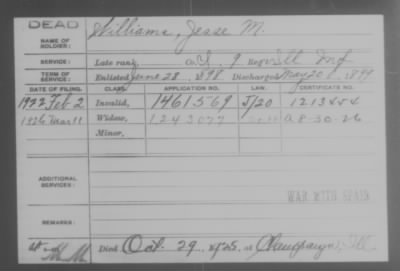 DEAD
NAME OF SOLDIER: Williams, Jesse M.
SERVICE: Late rank, Co. 9 Reg't Ill Inf
TERM OF SERVICE: Enlisted June 28, 1898 Discharged May 20, 1899
DATE OF FILING. CLASS. APPLICATION NO. LAW. CERTIFICATE NO.
1922 Feb 2 Invalid, 1461569 J/20 1213454
1926 Mar 11 Widow, 1243077 a 8-30-26
Minor,
ADDITIONAL SERVICES:
WAR WITH SPAIN
REMARKS:
Died Oct. 29, 1925, at Champaign, Ill